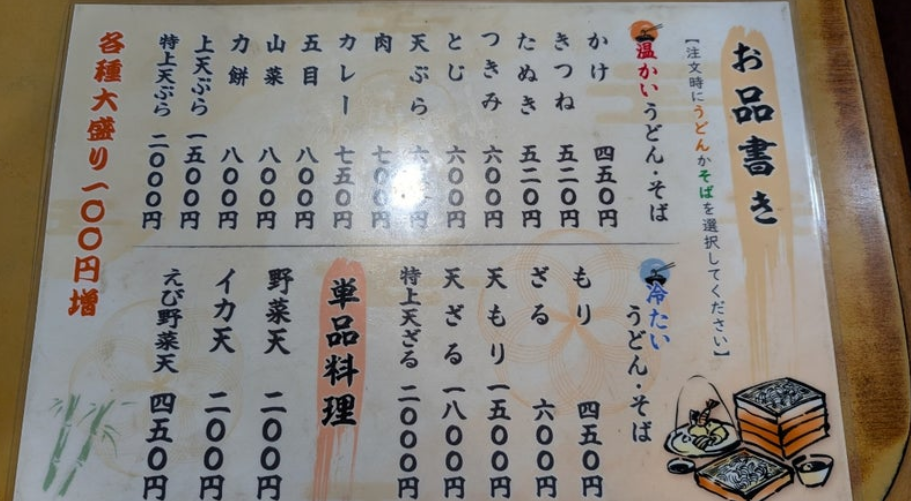 お品書き
【注文時にうどんかそばを選択してください】
温かいうどん・そば
かけ 四五〇円
きつね 五二〇円
たぬき 五二〇円
つきみ 六〇〇円
とじ 六〇〇円
天ぷら 六 円
肉 七〇〇円
カレー 七五〇円
五目 八〇〇円
山菜 八〇〇円
力餅 八〇〇円
上天ぷら 一五〇〇円
特上天ぷら 二〇〇〇円
冷たい
うどん・そば
もり 四五〇円
ざる 六〇〇円
天もり 一五〇〇円
天ざる 一八〇〇円
特上天ざる 二〇〇〇円
単品料理
野菜天 二〇〇円
イカ天 二〇〇円
えび野菜天 四五〇円
各種大盛り一〇〇円増